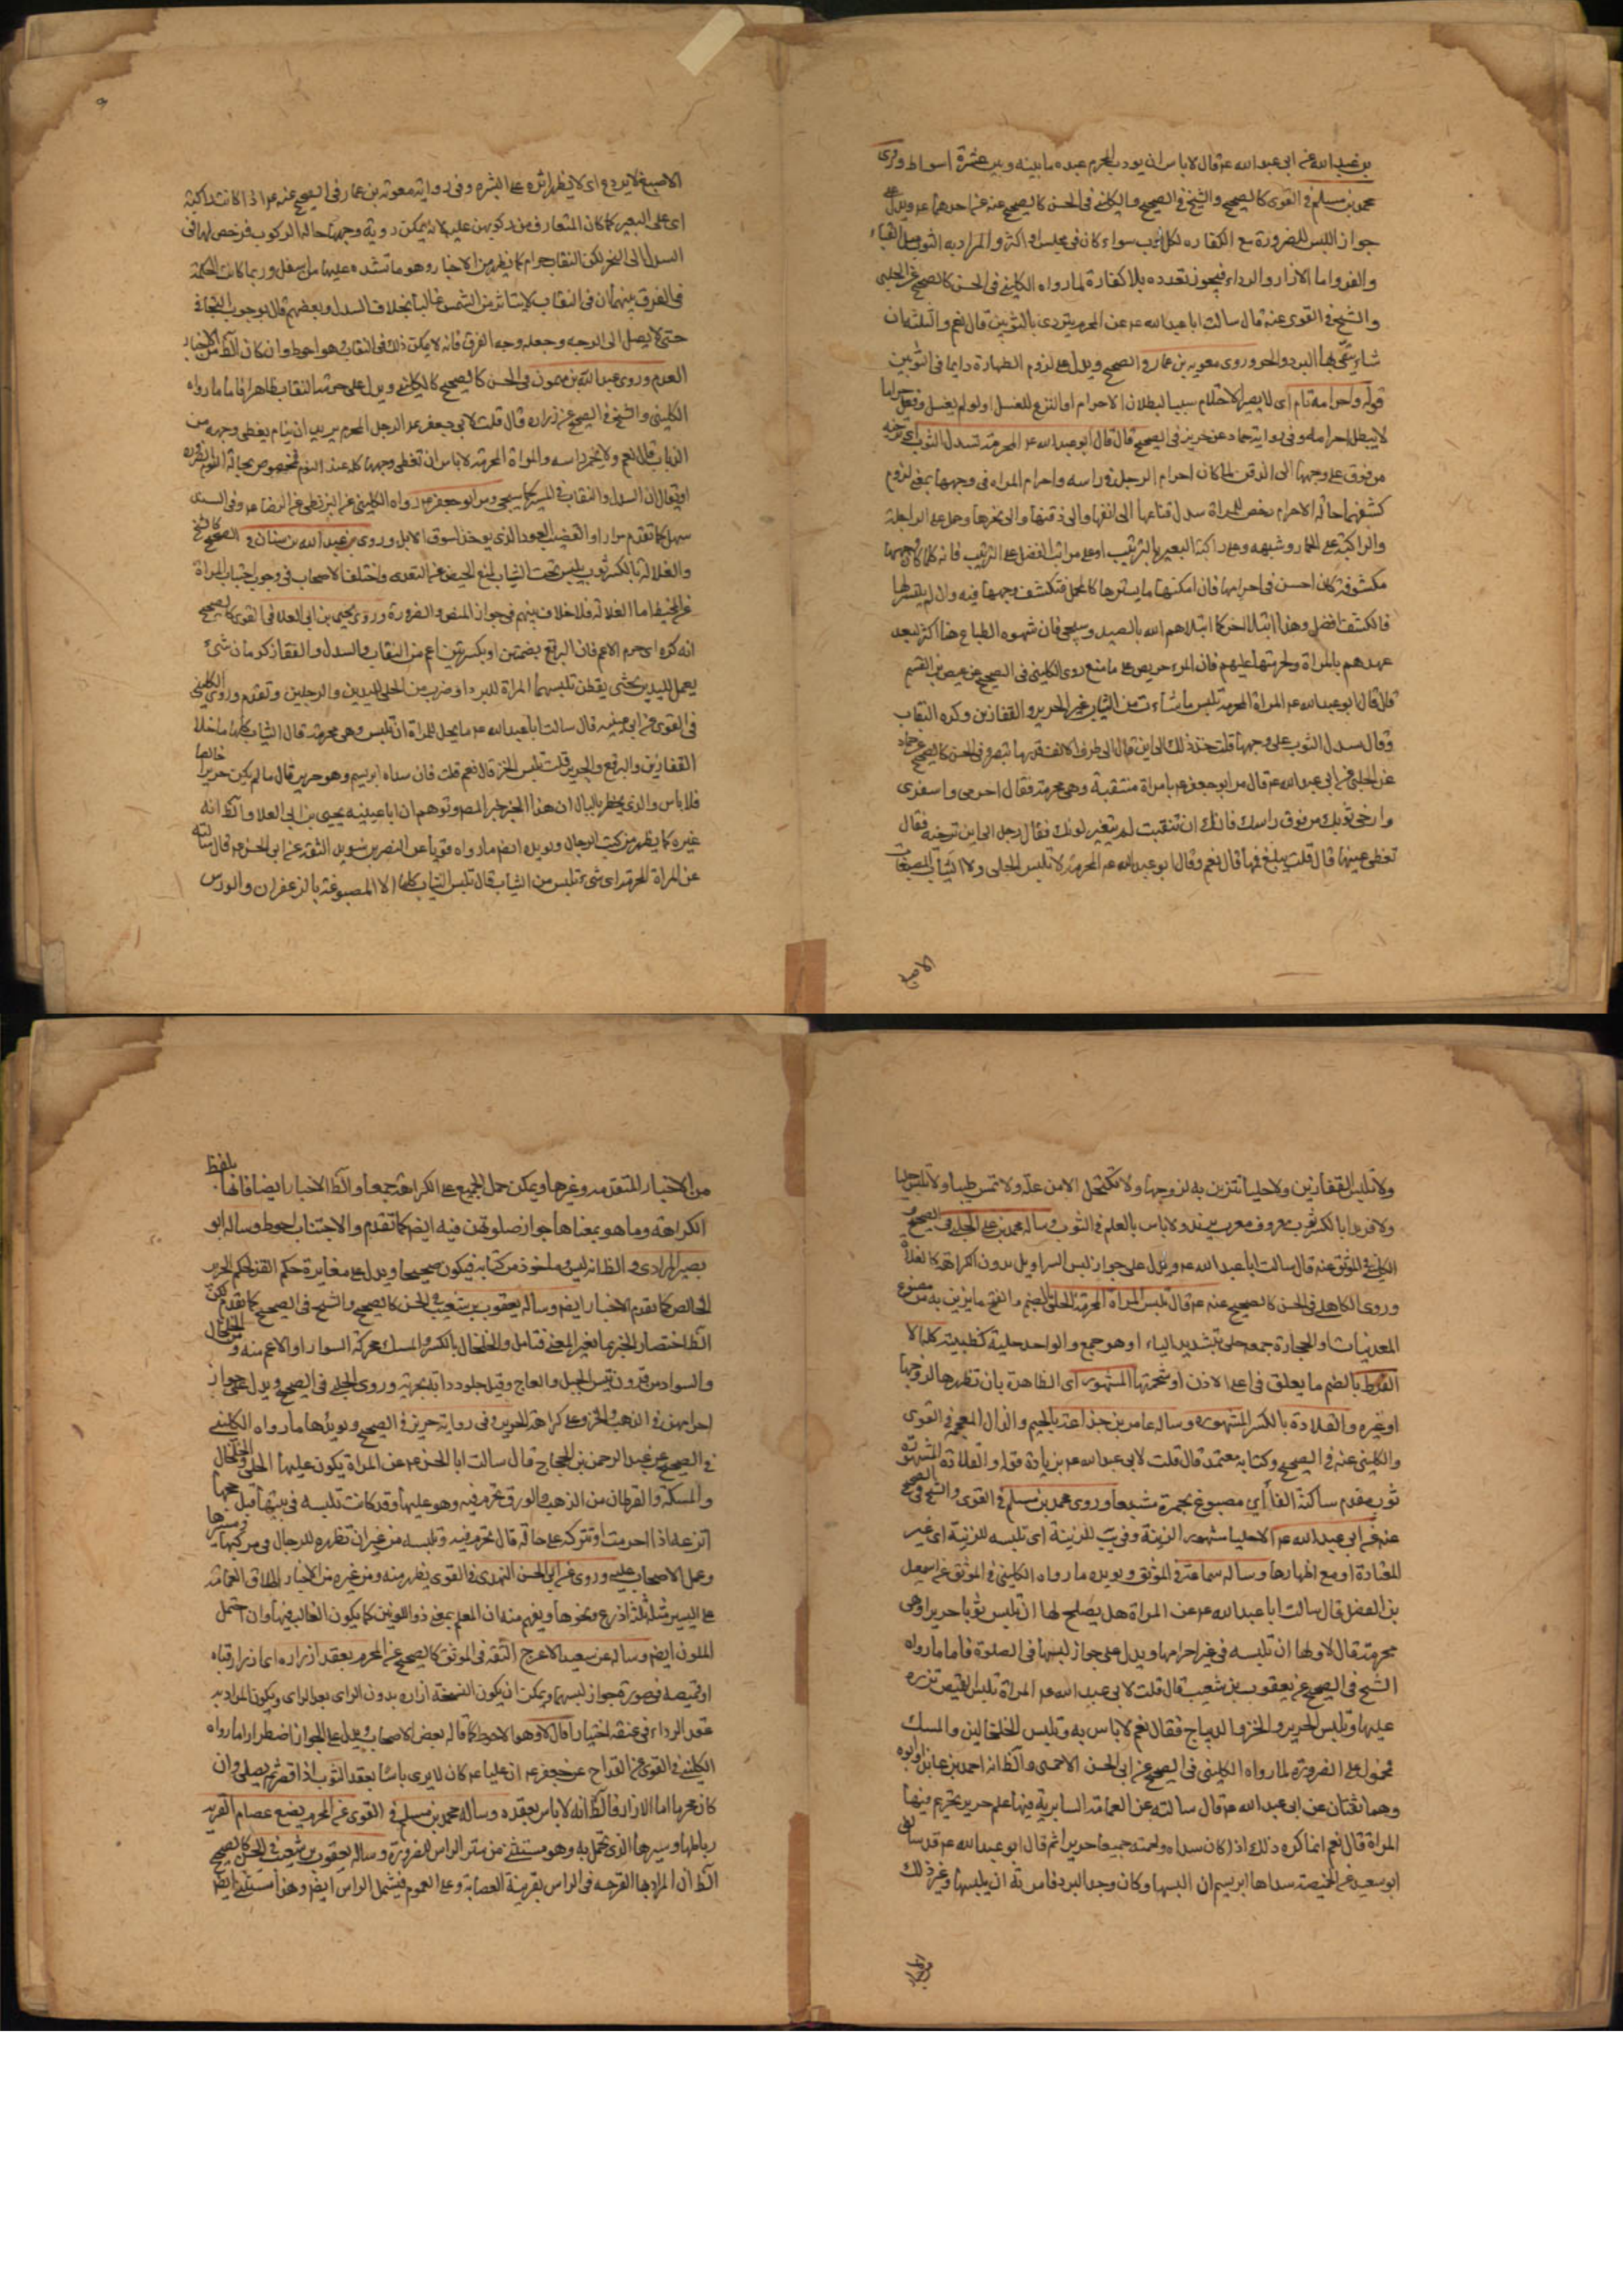 بن عبد الله عن ابى عبد الله ع قال لا باس ان يودب المحرم عبده ما بينه وبين عشرة اسواط وروى
محمد بن مسلم فى القوى كالصحيح والشيخ فى الصحيح والكلينى فى الحسن كالصحيح عنه عن احدهما ع ويدل على
جواز اللبس للضرورة مع الكفاره لكل ثوب سواء كان فى مجلس او اكثر والمراد به الثوب مثل القباء
والفرو اما الازار والرداء فيجوز تعدده بلا كفارة لما رواه الكلينى فى الحسن كالصحيح عن الحلبى
والشيخ فى القوى عنه قال سالت ابا عبد الله ع عن المحرم يتردى بالثوبين قال نعم والثلثة ان
شاء يتقى بها البرد والحر وروى معويه بن عمار فى الصحيح ويدل على لزوم الطهارة دايما فى الثوبين
قوله واحرامه تام اى لا يصير الاحتلام سببا لبطلان الاحرام او النزع للغسل او لو لم يغسل وفعل حراما
لا يبطل احرامه وفى رواية حماد عن حريز فى الصحيح قال قال ابو عبد الله ع المحرمة تسدل الثوب اى ترخيه
من فوق على وجهها الى الذقن لما كان احرام الرجل فى راسه واحرام المراه فى وجهها بمعنى لزوم
كشفهما حالة الاحرام رخص للمراة سدل قناعها الى انفها والى ذقنها والى نحرها وحمل على الراجلة
والراكبة على الحمار وشبهه وعلى راكبة البعير بالترتيب او على مراتب الفضل على الترتيب فانه كلما كان وجهها
مكشوفة كان احسن فى احرامها فان امكنها ما يسترها كالمحمل فتكشف وجهها فيه وان لم يتيسر لها
فالكشف افضل وهذا ابتلاء اخر كما ابتلاهم الله بالصيد وسيجى فان شهوه الطباع هنا اكثر لبعد
عهدهم بالمراة ولحرمتها عليهم فان المرء حريص على ما منع روى الكلينى فى الصحيح عن عيص بن القسم
قال قال ابو عبد الله ع المراة المحرمة تلبس ما شاءت من الثياب غير الحرير والقفازين وكره النقاب
وقال سدل الثوب على وجهها قلت حد ذلك الى اين قال الى طرف الانف قدر ما تبصر وفى الحسن كالصحيح عن حماد
عن الحلبى عن ابى عبد الله ع قال مر ابو جعفر ع بامراة متنقبة وهى محرمة فقال احرمى واسفرى
وارخى ثوبك من فوق راسك فانك ان تنقبت لم يتغير لونك فقال رجل الى اين ترخيه فقال
تغطى عينها قال قلت يبلغ فمها قال نعم وقال ابو عبد الله ع المحرمة لا تلبس الحلى ولا الثياب المصبغات
الاصبغ
الا صبغ لا يردع اى لا يظهر اثره على البشره وفى رواية معوية بن عمار فى الصحيح عنه ع اذا كانت راكبة
اى على البعير كما كان المتعارف من ركوبهن عليه لانه يمكن روية وجهها حالة الركوب فرخص لها فى
السدل الى النحر لكن النقاب حرام كما يظهر من الاخبار وهو ما تشده عليها من اسفل وربما كانت الحكمة
فى الفرق بينهما ان فى النقاب لا يتاثر من الشمس غالبا بخلاف السدل وبعضهم قال بوجوب التجافى
حتى لا يصل الى الوجه وجعله وجه الفرق فانه لا يمكن ذلك فى النقاب وهو احوط وان كان الظ من الاخبار
العدم وروى عبد الله بن ميمون فى الحسن كالصحيح كالكلينى ويدل على حرمة النقاب ظاهرا فاما ما رواه
الكلينى والشيخ فى الصحيح عن زراره قال قلت لابى جعفر ع الرجل المحرم يريد ان ينام يغطى وجهه من
الذباب قال نعم ولا يخمر راسه والمراة المحرمة لا باس ان تغطى وجهها كله عند النوم فمخصوص بحالة النوم للضرورة
او يقال ان السدل والنقاب فى السير كما سيجى ومر ابو جعفر ع رواه الكلينى عن البزنطى عن الرضا ع وفى السند
سهل كما تقدم مرارا والقضيب العود الذى يوخذ لسوق الابل وروى عبد الله بن سنان فى الصحيح كالشيخ
والغلالة بالكسر ثوب يلبس تحت الثياب لمنع الحيض عن التعدى واختلف الاصحاب فى وجوب اجتناب المراة
عن المخيط اما الغلالة فلا خلاف بينهم فى جواز للنص والضرورة وروى يحيى بن ابى العلا فى القوى كالصحيح
انه كره اى حرم الاعم فان البراقع بضمتين او بكسرتين اعم من النقاب والسدل والقفاز كرمان شئ
يعمل لليدين يحشى بقطن تلبسهما المراة للبرد او ضرب من الحلى لليدين والرجلين وتقدم وروى الكلينى
فى القوى عن ابى عيينه قال سالت ابا عبد الله ع ما يحل للمراة ان تلبس وهى محرمة قال الثياب كلها ما خلا
القفازين والبرقع والحرير قلت تلبس الخز قال نعم قلت فان سداه ابريسم وهو حرير قال ما لم يكن حريرا خالصا
فلا باس والذى يخطر بالبال ان هذا الخبر خبر المصر وتوهم ان ابا عيينه يحيى بن ابى العلا والظ انه
غيره كما يظهر من كتب الرجال ويويده ايضا ما رواه قويا عن النضر بن سويد الثقة عن ابى الحسن ع قال سالته
عن المراة المحرمة اى شىء تلبس من الثياب قال تلبس الثياب كلها الا المصبوغة بالزعفران والورس
ولا تلبس القفازين ولا حليا تتزين به لزوجها ولا تكتحل الا من علة ولا تمس طيبا ولا تلبس حليا
ولا فرندا بالكسر ثوب معروف معرب پرند ولا باس بالعلم فى الثوب وساله محمد بن على الحلبى فى الصحيح و
الكلينى فى الموثق عنه قال سالت ابا عبد الله ع ويدل على جواز لبس السراويل بدون الكراهة كالغلالة
وروى الكاهلى فى الحسن كالصحيح عنه ع قال تلبس المراة المحرمة الحلى بالضم والفتح ما يزين به من مصنوع
المعدنيات او الحجارة جمع حلى بتشديد الياء او هو جمع والواحد حلية كظبية كلها الا
القرط بالضم ما يعلق فى اعلا الاذن او شحمتها المشهور اى الظاهرة بان تظهرها لزوجها
او غيره والقلادة بالكسر المشهورة وساله عامر بن جذاعة بالجيم والذال المعجمة فى القوى
والكلينى عنه فى الصحيح وكتابه معتمد قال قلت لابى عبد الله ع بزيادة قوله والقلادة المشهورة
ثوب مفدم ساكنة الفا اى مصبوغ بحمرة مشبعا وروى محمد بن مسلم فى القوى والشيخ فى الصحيح
عنه عن ابى عبد الله ع الا حليا مشهورا للزينة وفى يب للزينة اى تلبسه للزينة اى غير
المعتادة او مع اظهارها وساله سماعة فى الموثق ويويده ما رواه الكلينى فى الموثق عن اسمعيل
بن الفضل قال سالت ابا عبد الله ع عن المراة هل يصلح لها ان تلبس ثوبا حريرا وهى
محرمة قال لا ولها ان تلبسه فى غير احرامها ويدل على جواز لبسها فى الصلوة فاما ما رواه
الشيخ فى الصحيح عن يعقوب بن شعيب قال قلت لابى عبد الله ع المراة تلبس القميص تزره
عليها وتلبس الحرير والخز والديباج فقال نعم لا باس به وتلبس الخلخالين والمسك
فمحمول على الضرورة لما رواه الكلينى فى الصحيح عن ابى الحسن الاحمسى والظ انه احمد بن عايذ او ابوه
وهما ثقتان عن ابى عبد الله ع قال سالته عن العمامة السابرية فيها علم حرير تحرم فيها
المراة قال نعم انما كره ذلك اذا كان سداه ولحمته جميعا حريرا ثم قال ابو عبد الله ع قد سالنى
ابو سعيد عن الخميصة سداها ابريسم ان البسها وكان وجد البرد فامرته ان يلبسها وغير ذلك
من الاخبار المتقدمه وغيرها ويمكن حمل الجميع على الكراهة جمعا والظ الاخبار ايضا فانها بلفظ
الكراهة وما هو بمعناها جواز صلوتهن فيه ايضا كما تقدم والاجتناب احوط وساله ابو
بصير المرادى والظ انه ليث وماخوذ من كتابه فيكون صحيحا ويدل على مغايرة حكم القز لحكم الحرير
الخالص كما تقدم الاخبار ايضا وساله يعقوب بن شعيب فى الحسن كالصحيح والشيخ فى الصحيح كما تقدم لكن
الظ اختصار الخبر بما يغير المعنى فتامل والخلخال بالكسر والمسك محركة السوار او الاعم منه ومن الخلخال
والسوار من قرون تيس الجبل والعاج وقيل جلود دابة بحرية وروى الحلبى فى الصحيح ويدل على جواز
احرامهن فى الذهب والخز وعلى كراهة الحرير وفى رواية حريز فى الصحيح ويويدها ما رواه الكلينى
فى الصحيح عن عبد الرحمن بن الحجاج قال سالت ابا الحسن ع عن المراة يكون عليها الحلى والخلخال
والمسكة والقرطان من الذهب والورق تحرم فيه وهو عليها وقد كانت تلبسه فى بيتها قبل حجها
اتنزعه اذا احرمت او تتركه على حاله قال تحرم فيه وتلبسه من غير ان تظهره للرجال فى مركبها ومسيرها
وعمل الاصحاب عليه وروى عن ابى الحسن النهدى فى القوى يظهر منه ومن غيره من الاخبار اطلاق العمامة
على اليسير مثل ثلثة اذرع ونحوها ويفهم منه ان المعلم بمعنى ذو اللونين كما يكون الغالب فيها وان احتمل
الملون ايضا وساله عن سعيد الاعرج الثقة فى الموثق كالصحيح عن المحرم يعقد ازراره اى ازرار قباه
او قميصه فى صورة جواز لبسهما ويمكن ان يكون النسخة ازاره بدون الراى بعد الراى ويكون المراد به
عقد الرداء فى عنقه اختيارا قال لا وهو الاحوط كما قاله بعض الاصحاب ويدل على الجواز اضطرارا ما رواه
الكلينى فى القوى عن القداح عن جعفر ع ان عليا ع كان لا يرى باسا بعقد الثوب اذا قصر ثم يصلى وان
كان محرما اما الازار فالظ انه لا باس بعقده وساله محمد بن مسلم فى القوى عن المحرم يضع عصام القربة
رباطها وسيرها الذى تحمل به وهو مستثنى من ستر الراس للضرورة وساله يعقوب بن شعيب فى الحسن كالصحيح
الظ ان المراد بها القرحه فى الراس بقرينة العصابة وعلى العموم فيشمل الراس ايضا وهذا مستثنى ايضا